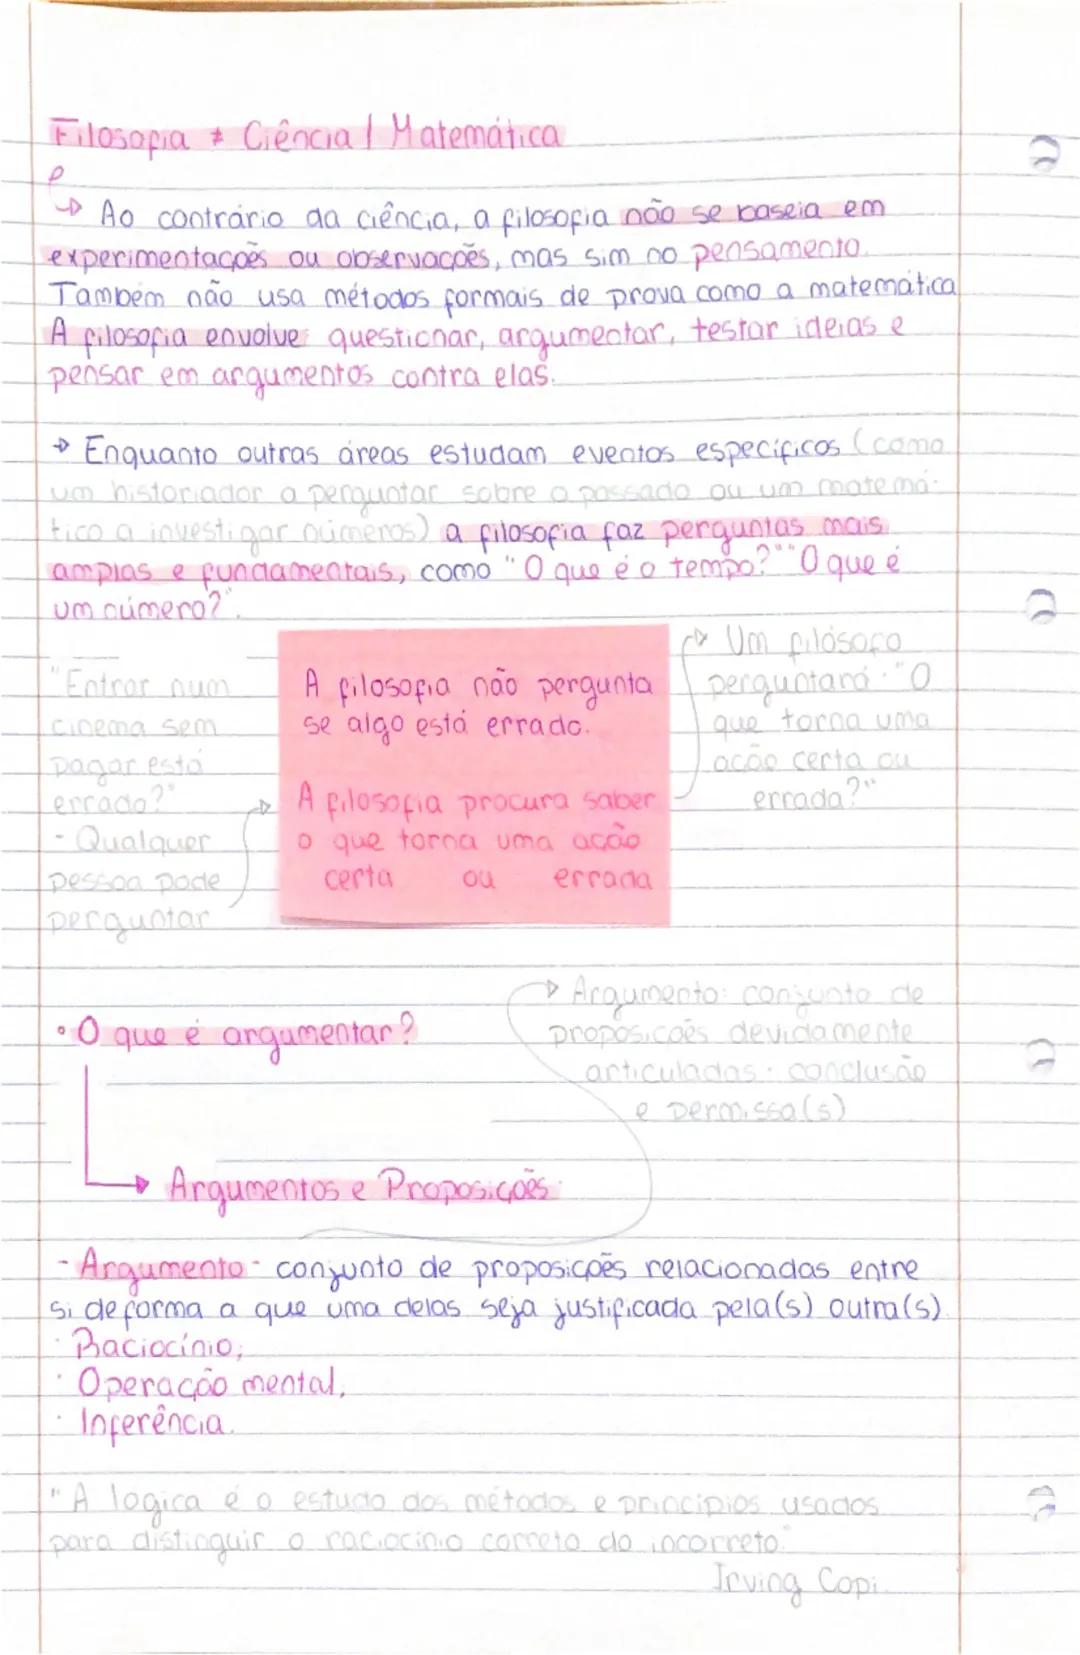 Filosofia ≠ Ciência / Matemática
e
→ Ao contrário da ciência, a filosofia não se baseia em
experimentações ou observações, mas sim no pensamento.
Também não usa métodos formais de prova como a matemática
A filosofia envolve: questionar, argumentar, testar ideias e
pensar em argumentos contra elas.
→ Enquanto outras áreas estudam eventos específicos (como
um historiador a perguntar sobre o passado ou um matemá-
tico a investigar números) a filosofia faz perguntas mais
amplas e fundamentais, como "O que é o tempo?" "O que é
um número?".
"Entrar num
cinema sem
pagar está
errado?"
- Qualquer
pessoa pode
perguntar
A filosofia não pergunta
se algo está errado.
A filosofia procura saber
o que torna uma ação
certa ou errada
→ Um filósofo
perguntará: "O
que torna uma
ação certa ou
errada?"
→ Argumento: conjunto de
proposições devidamente
articuladas: conclusão
e permissa(s)
• O que é argumentar?
→ Argumentos e Proposições:
- Argumento - conjunto de proposições relacionadas entre
si de forma a que uma delas seja justificada pela(s) outra(s).
· Raciocínio;
· Operação mental;
· Inferência.
"A lógica é o estudo dos métodos e princípios usados
para distinguir o raciocínio correto do incorreto."
Irving Copi